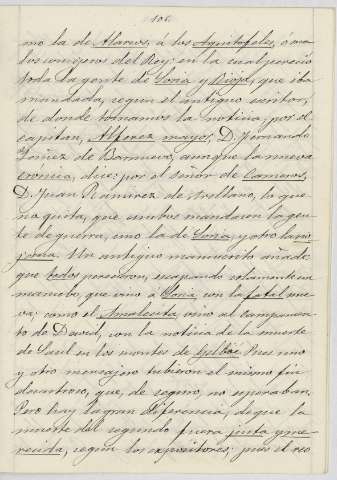 106
mo la de Alarcos, á los Aquitofeles, ó ma
los consejeros del Rey; en la cual pereció
toda la gente de Soria y Rioja, que iba
mandada, segun el antiguo escritor,
de donde tomamos la noticia, por el
capitan, Alferez mayor, D. Fernando
Yañez de Barnuevo, aunque la nueva
cronica, dice: por el señor de Cameros,
D. Juan Ramirez de Arellano, lo que
no quita, que ambos mandasen la gen
te de guerra, uno la de Soria y otro la rio
jana. Un antiguo manuscrito añade
que todos perecieron, escapando solamente un
mancebo, que vino á Soria con la fatal nue
va; como el Amalecita vino al campamen
to de David, con la noticia de la muerte
de Saul en los montes de Gelboé. Pues uno
y otro mensajero tubieron el mismo fin
desastroso, que, de seguro, no esperaban.
Pero hay la gran diferencia, de que la
muerte del segundo fuera justa y me
recida, segun los expositores; pues el reo